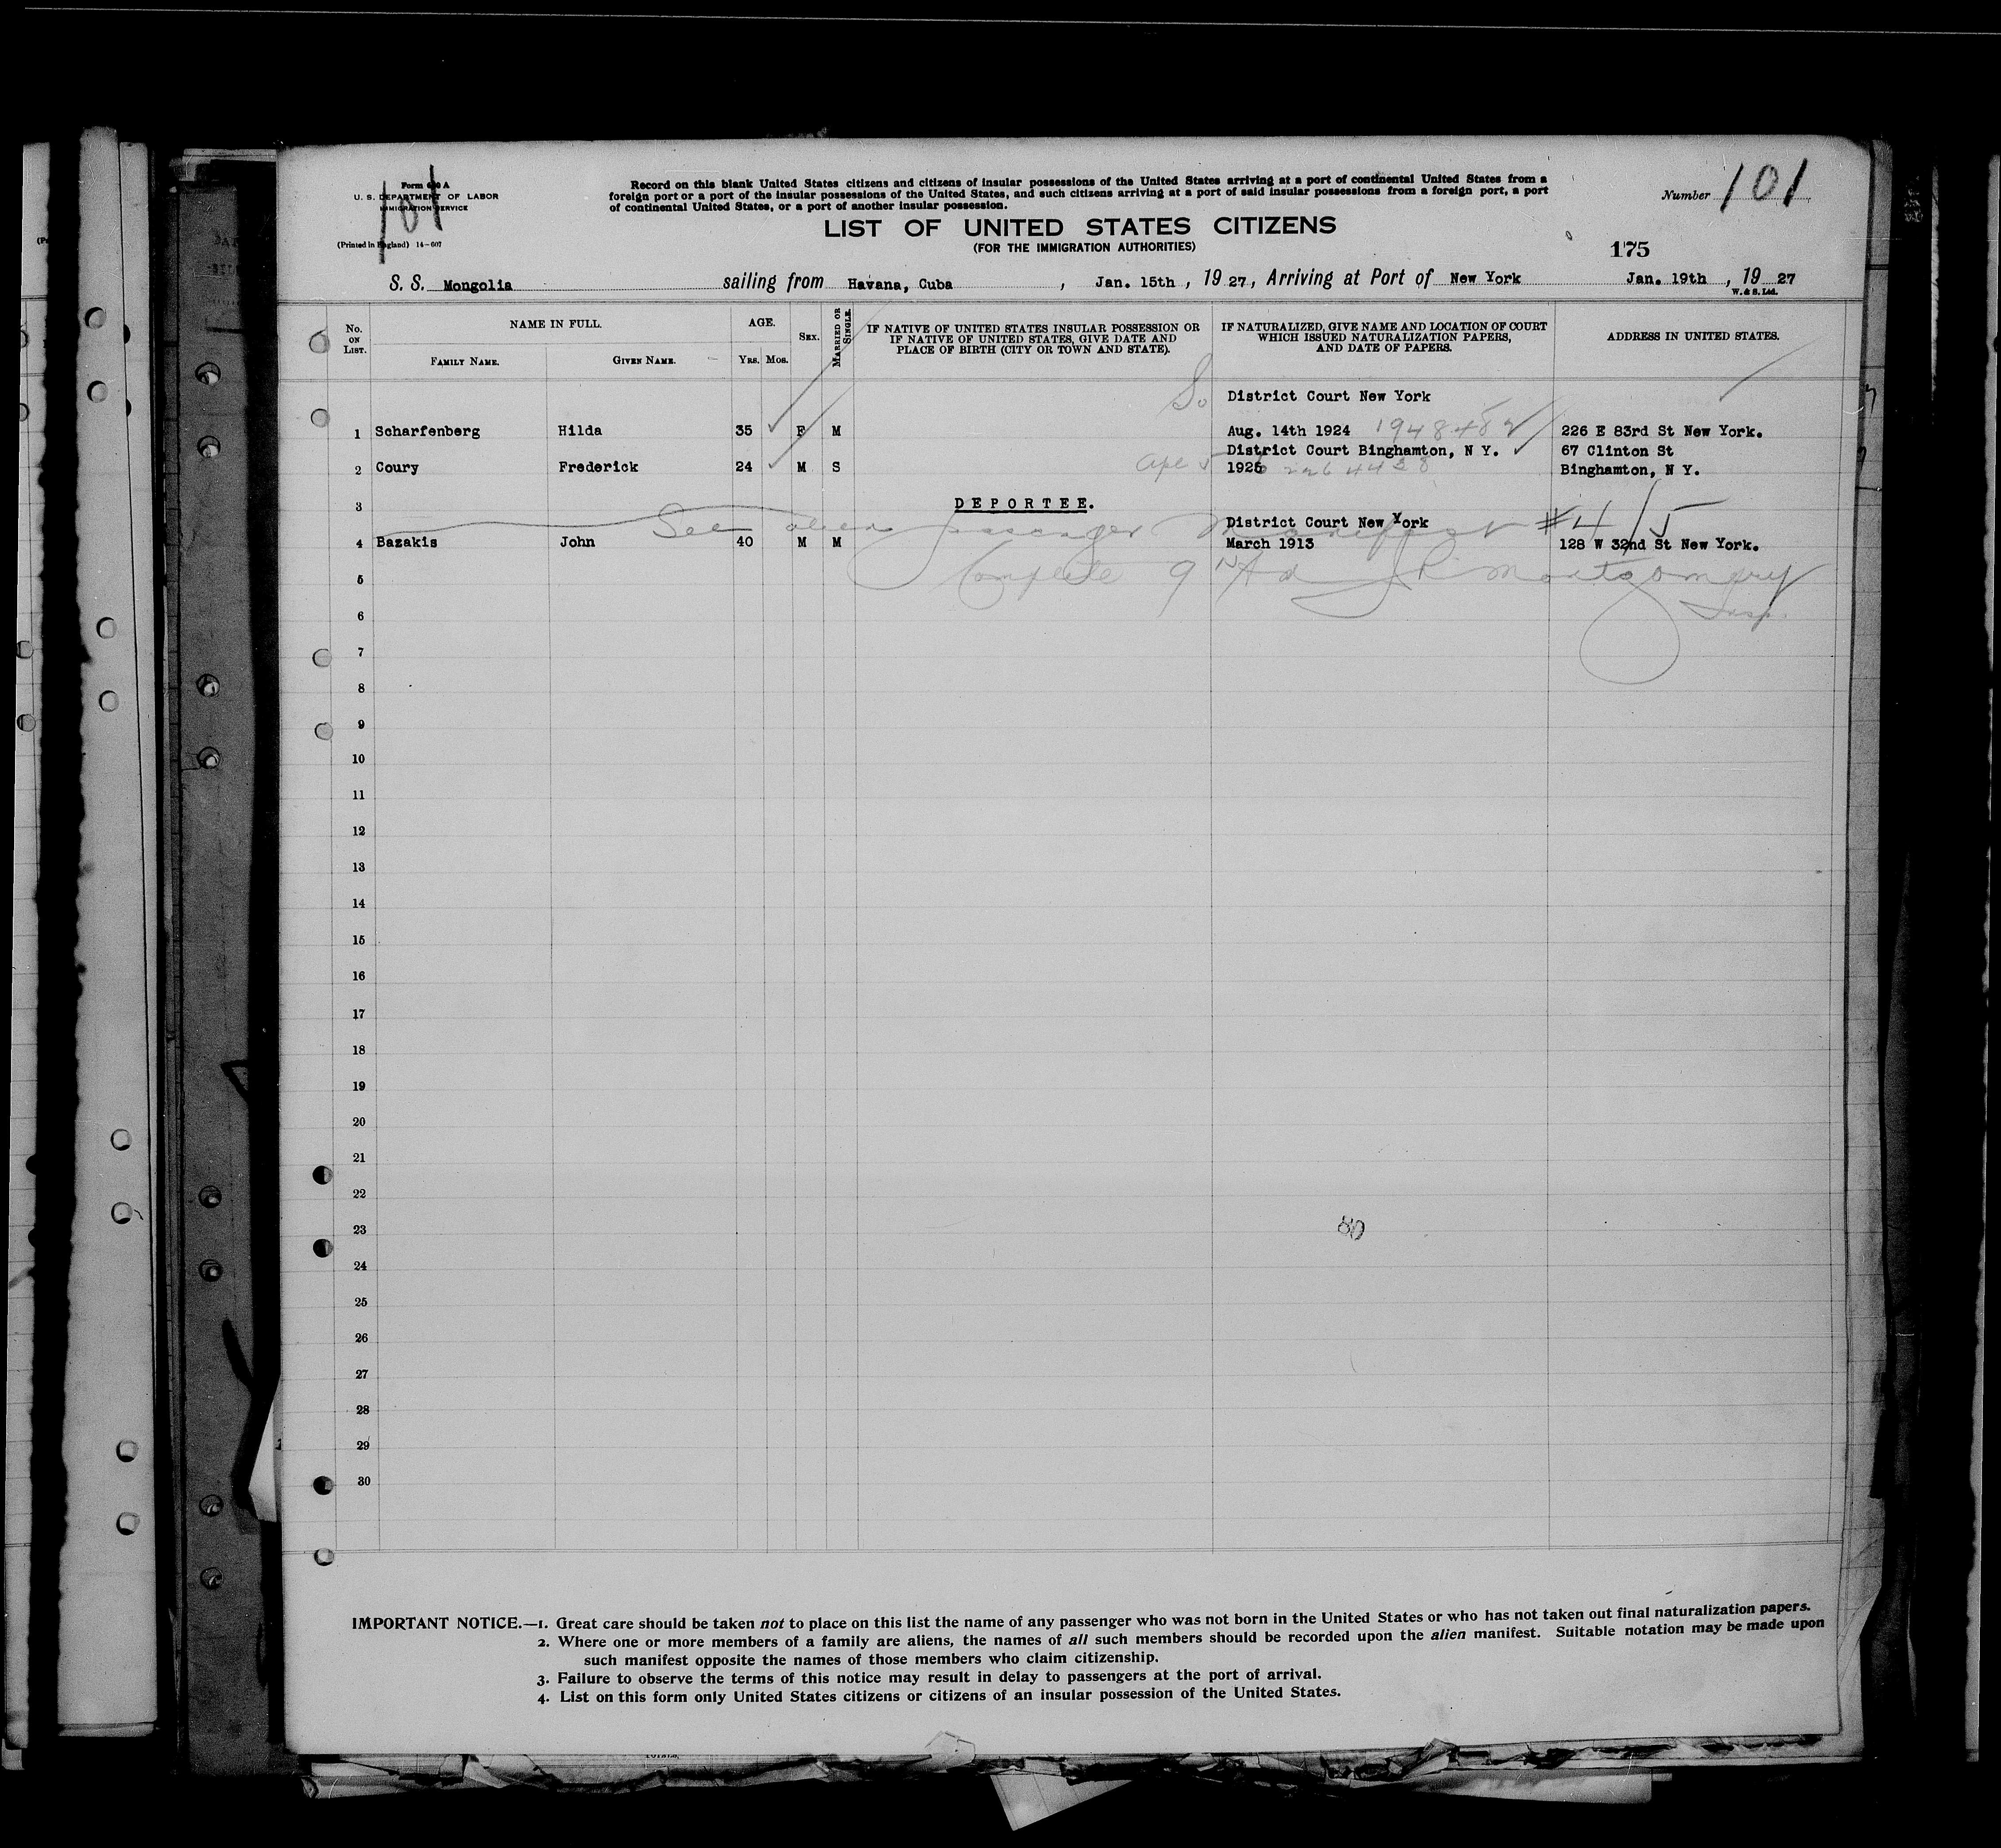 Form 630 A
U. S. DEPARTMENT OF LABOR
IMMIGRATION SERVICE
(Printed in England) 14-607
101
Record on this blank United States citizens and citizens of insular possessions of the United States arriving at a port of continental United States from a
foreign port or a port of the insular possessions of the United States, and such citizens arriving at a port of said insular possessions from a foreign port, a port
of continental United States, or a port of another insular possession.
Number 101
LIST OF UNITED STATES CITIZENS
(FOR THE IMMIGRATION AUTHORITIES)
175
S. S. Mongolia sailing from Havana, Cuba , Jan. 15th , 19 27, Arriving at Port of New York Jan. 19th , 19 27
W. & S. Ltd.
No. ON LIST.
NAME IN FULL.
FAMILY NAME. GIVEN NAME.
AGE.
YRS. MOS.
SEX.
MARRIED OR SINGLE.
IF NATIVE OF UNITED STATES INSULAR POSSESSION OR
IF NATIVE OF UNITED STATES, GIVE DATE AND
PLACE OF BIRTH (CITY OR TOWN AND STATE).
IF NATURALIZED, GIVE NAME AND LOCATION OF COURT
WHICH ISSUED NATURALIZATION PAPERS,
AND DATE OF PAPERS.
ADDRESS IN UNITED STATES.
So District Court New York
1 Scharfenberg Hilda 35 F M Aug. 14th 1924 226 E 83rd St New York.
District Court Binghamton, N Y. 67 Clinton St
2 Coury Frederick 24 M S 1926 Binghamton, N Y.
3 DEPORTEE.
See alien passenger Manifest #4/5
District Court New York
4 Bazakis John 40 M M March 1913 128 W 32nd St New York.
5 Complete Montgomery
6 Insp.
7
8
9
10
11
12
13
14
15
16
17
18
19
20
21
22
23 80
24
25
26
27
28
29
30
IMPORTANT NOTICE.—1. Great care should be taken not to place on this list the name of any passenger who was not born in the United States or who has not taken out final naturalization papers.
2. Where one or more members of a family are aliens, the names of all such members should be recorded upon the alien manifest. Suitable notation may be made upon
such manifest opposite the names of those members who claim citizenship.
3. Failure to observe the terms of this notice may result in delay to passengers at the port of arrival.
4. List on this form only United States citizens or citizens of an insular possession of the United States.